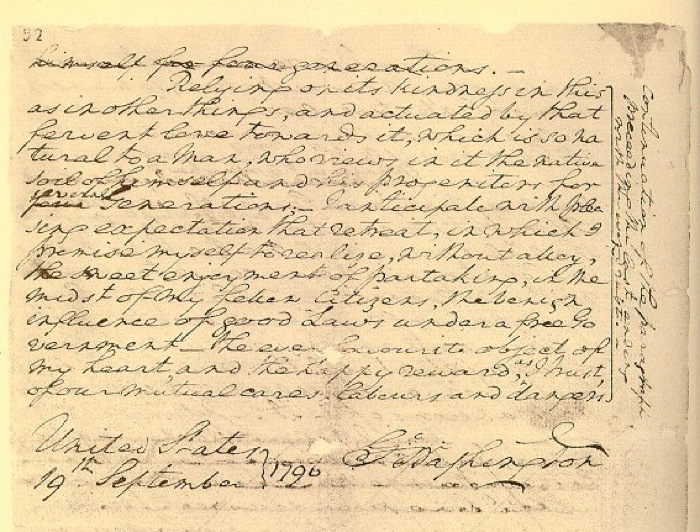 32
himself for four generations. —
Relying on its kindness in this
as in other things, and actuated by that
fervent love towards it, which is so na
tural to a Man, who views in it the native
soil of himself and his progenitors for
several
four Generations; — I anticipate with plea
sing expectation that retreat, in which I
promise myself to realize, without alloy,
the sweet enjoyment of partaking, in the
midst of my fellow Citizens, the benign
influence of good Laws under a free Go
vernment — the ever favourite object of
my heart, and the happy reward, as I trust,
of our mutual cares, labours and dangers
United States
19th September } 1796
Go Washington
continuation of the paragraph
preceeding the last ending
with the word